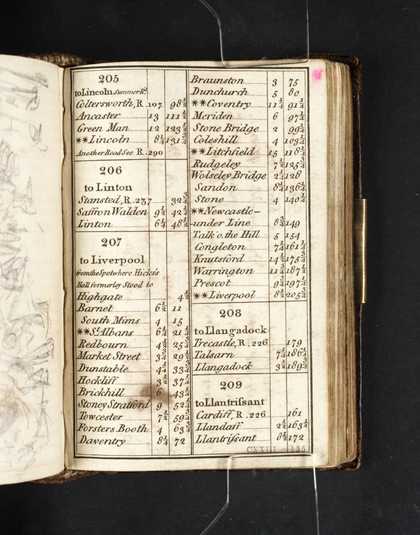 205
to Lincoln, Summer R.d
Coltersworth, R. 197 98½
Ancaster 13 111½
Green Man 12 123½
**Lincoln 8¼ 131¾
Another Road See R. 290
206
to Linton
Stansted, R. 237 32¾
Saffron Walden 9½ 42¼
Linton 6¼ 48½
207
to Liverpool
from the Spot where Hicks's
Hall formerly Stood to
Highgate 4½
Barnet 6½ 11
South Mims 4 15
**St. Albans 6¼ 21¼
Redbourn 4¼ 25½
Market Street 3¾ 29¼
Dunstable 4¼ 33½
Hockliff 3¾ 37¼
Brickhill 6 43¼
Stoney Stratford 9 52¼
Towcester 7½ 59¾
Forsters Booth 4 63¾
Daventry 8¼ 72
Braunston 3 75
Dunchurch 5 80
**Coventry 11¼ 91¼
Meriden 6 97¼
Stone Bridge 2 99¼
Coleshill 4 103¼
**Litchfield 15 118¼
Rudgeley 7¼ 125½
Wolseley Bridge 2½ 128
Sandon 8¼ 136¼
Stone 4 140¼
**Newcastle-
under Line 8¾ 149
Talk o. the Hill 5 154
Congleton 7¼ 161¼
Knutsford 14½ 175¾
Warrington 11¾ 187½
Prescot 9¾ 197¼
**Liverpool 8¼ 205½
208
to Llangadock
Trecastle, R. 226 179
Talsarn 7¼ 186¼
Llangadock 3¼ 189½
209
to Llantrissant
Cardiff, R. 226 161
Llandaff 2½ 163½
Llantrissant 8½ 172